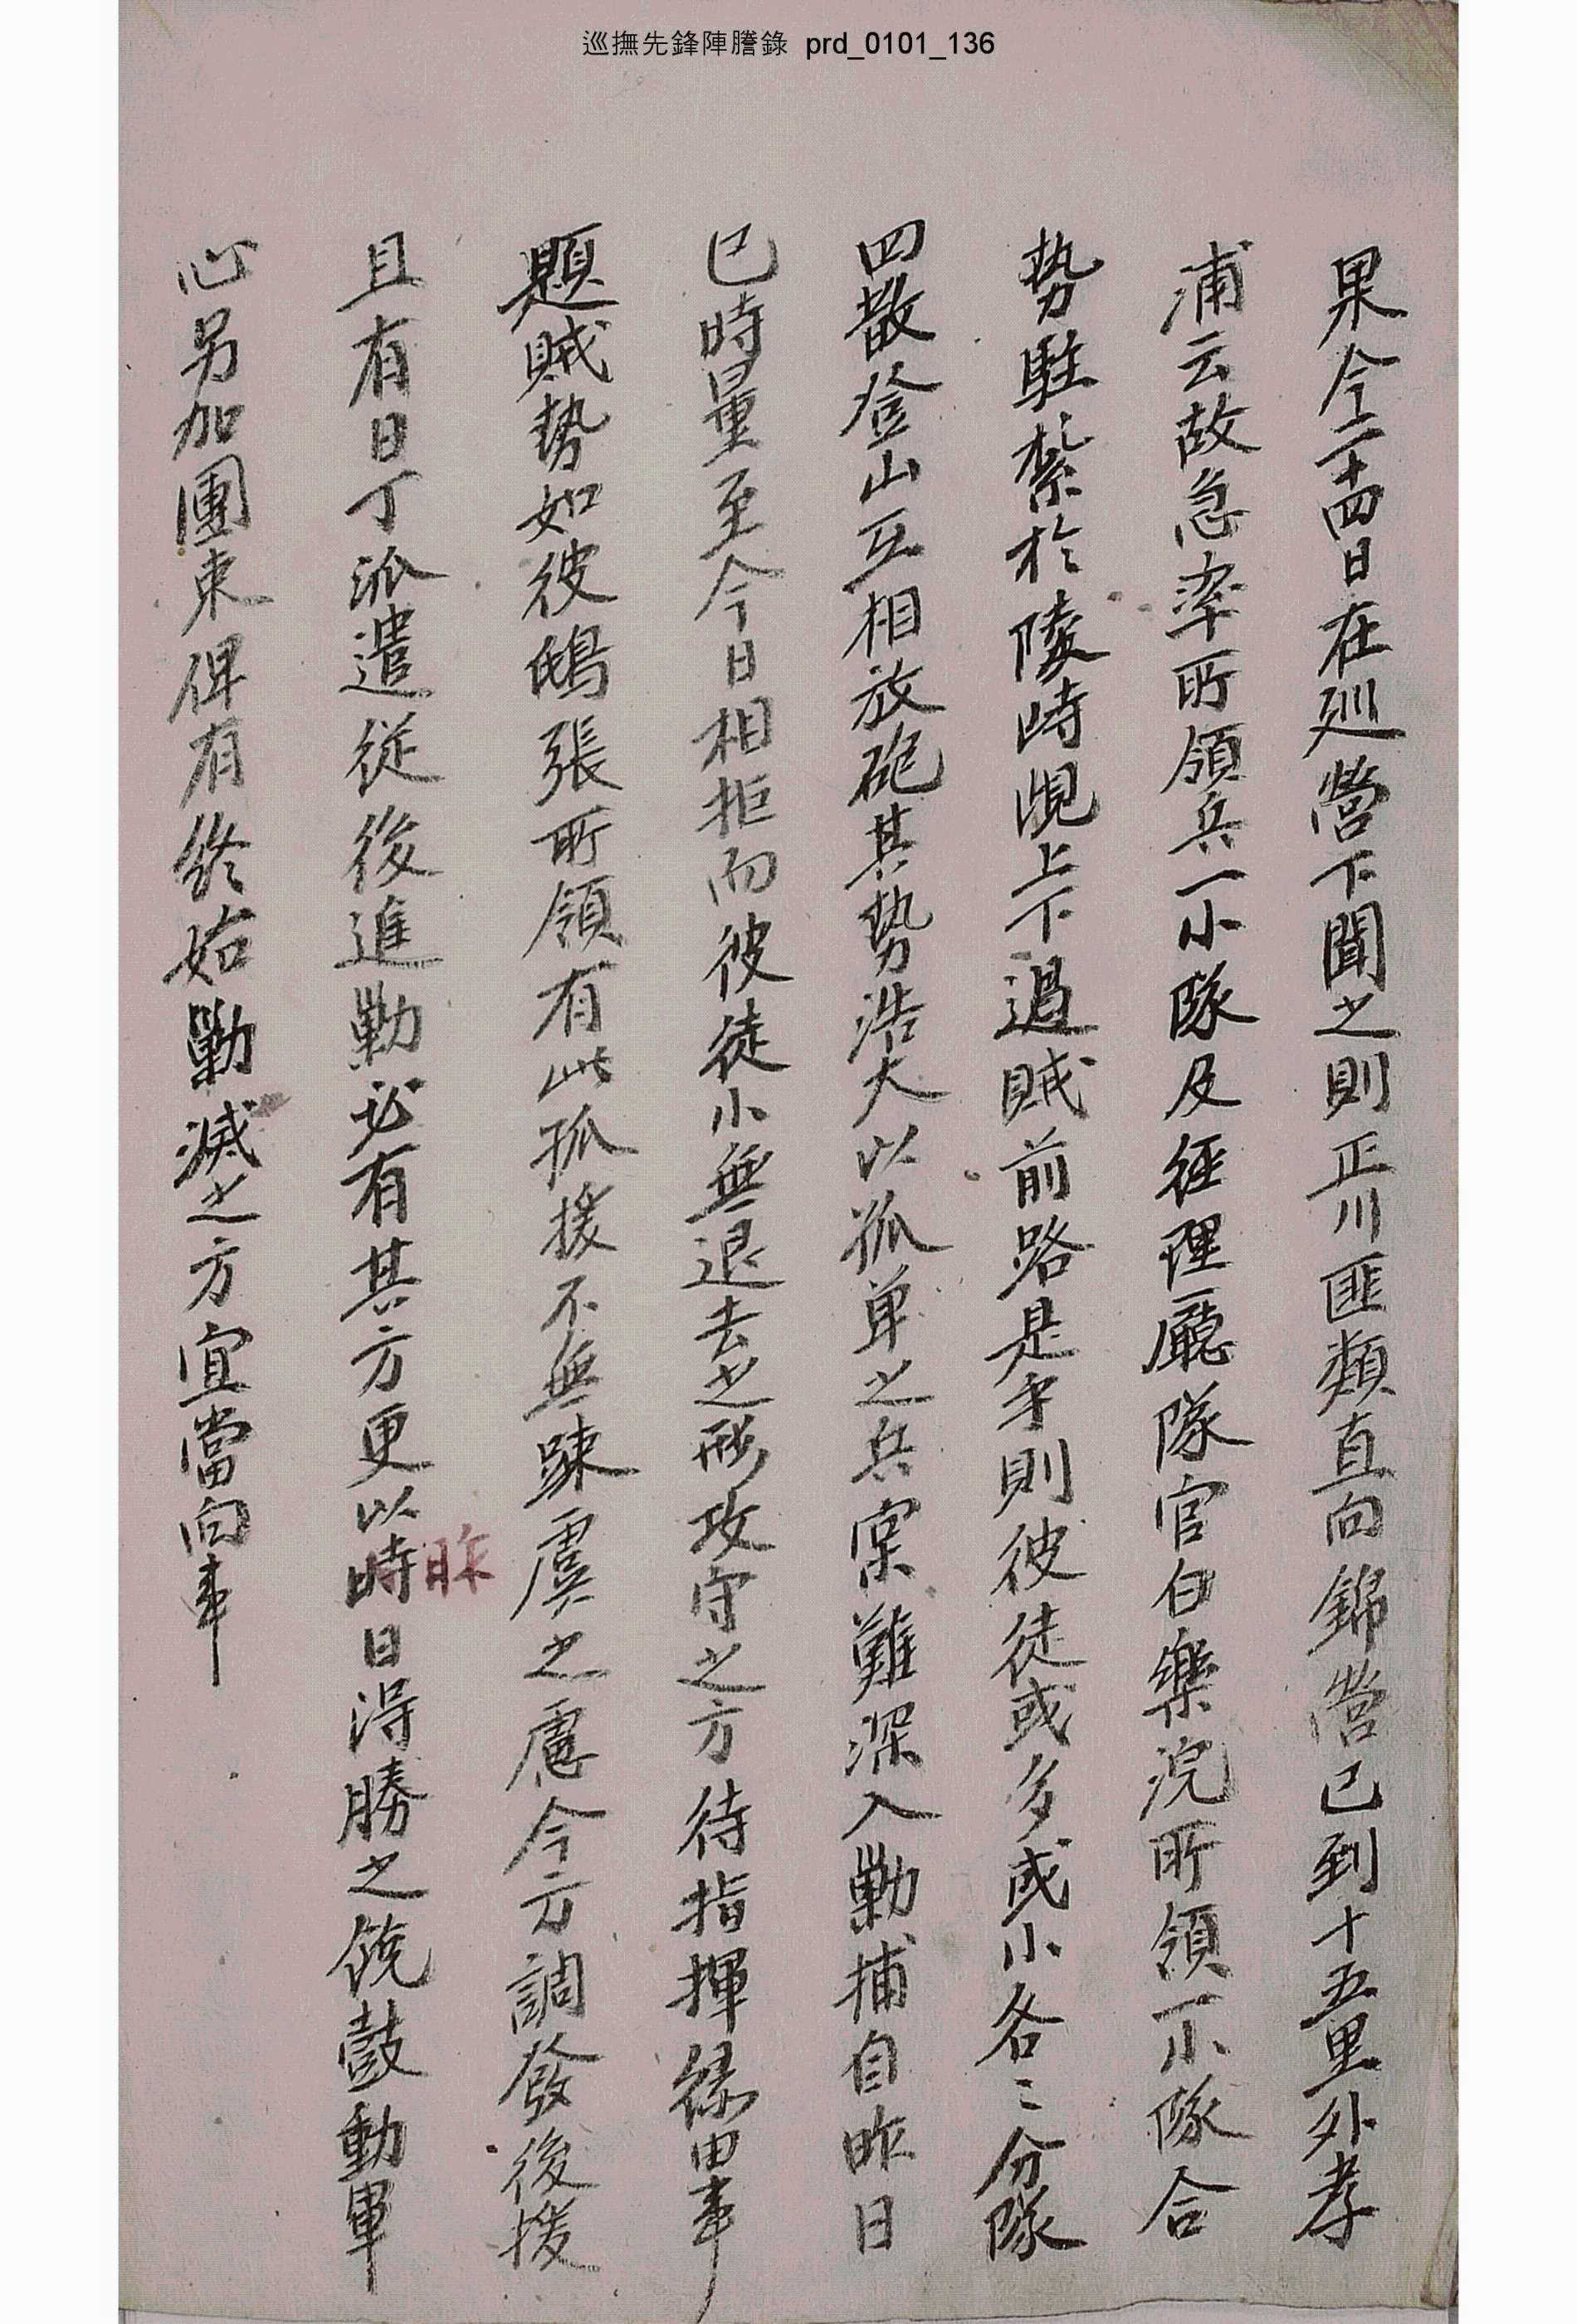 巡撫先鋒陣謄錄 prd_0101_136
果今二十四日在巡營下聞之則正川匪類直向錦營已到十五里外孝
浦云故急率所領兵一小隊及徑理廳隊官白樂浣所領一小隊合
势駐紮於陵峙峴上下遏賊前路是乎則彼徒或多或小各〻分隊
四散登山互相放砲其势浩大以孤单之兵寀難深入勦捕自昨日
巳時量至今日相拒而彼徒小無退去之形攻守之方待指揮緣由事
題賊势如彼鴟張所領有此孤援不無踈虞之慮今方調發後援
且有日丁派遣從後進勦必有其方更以時日得勝之銳鼓動軍
昨
心另加團束俾有終始勦滅之方宜當向事